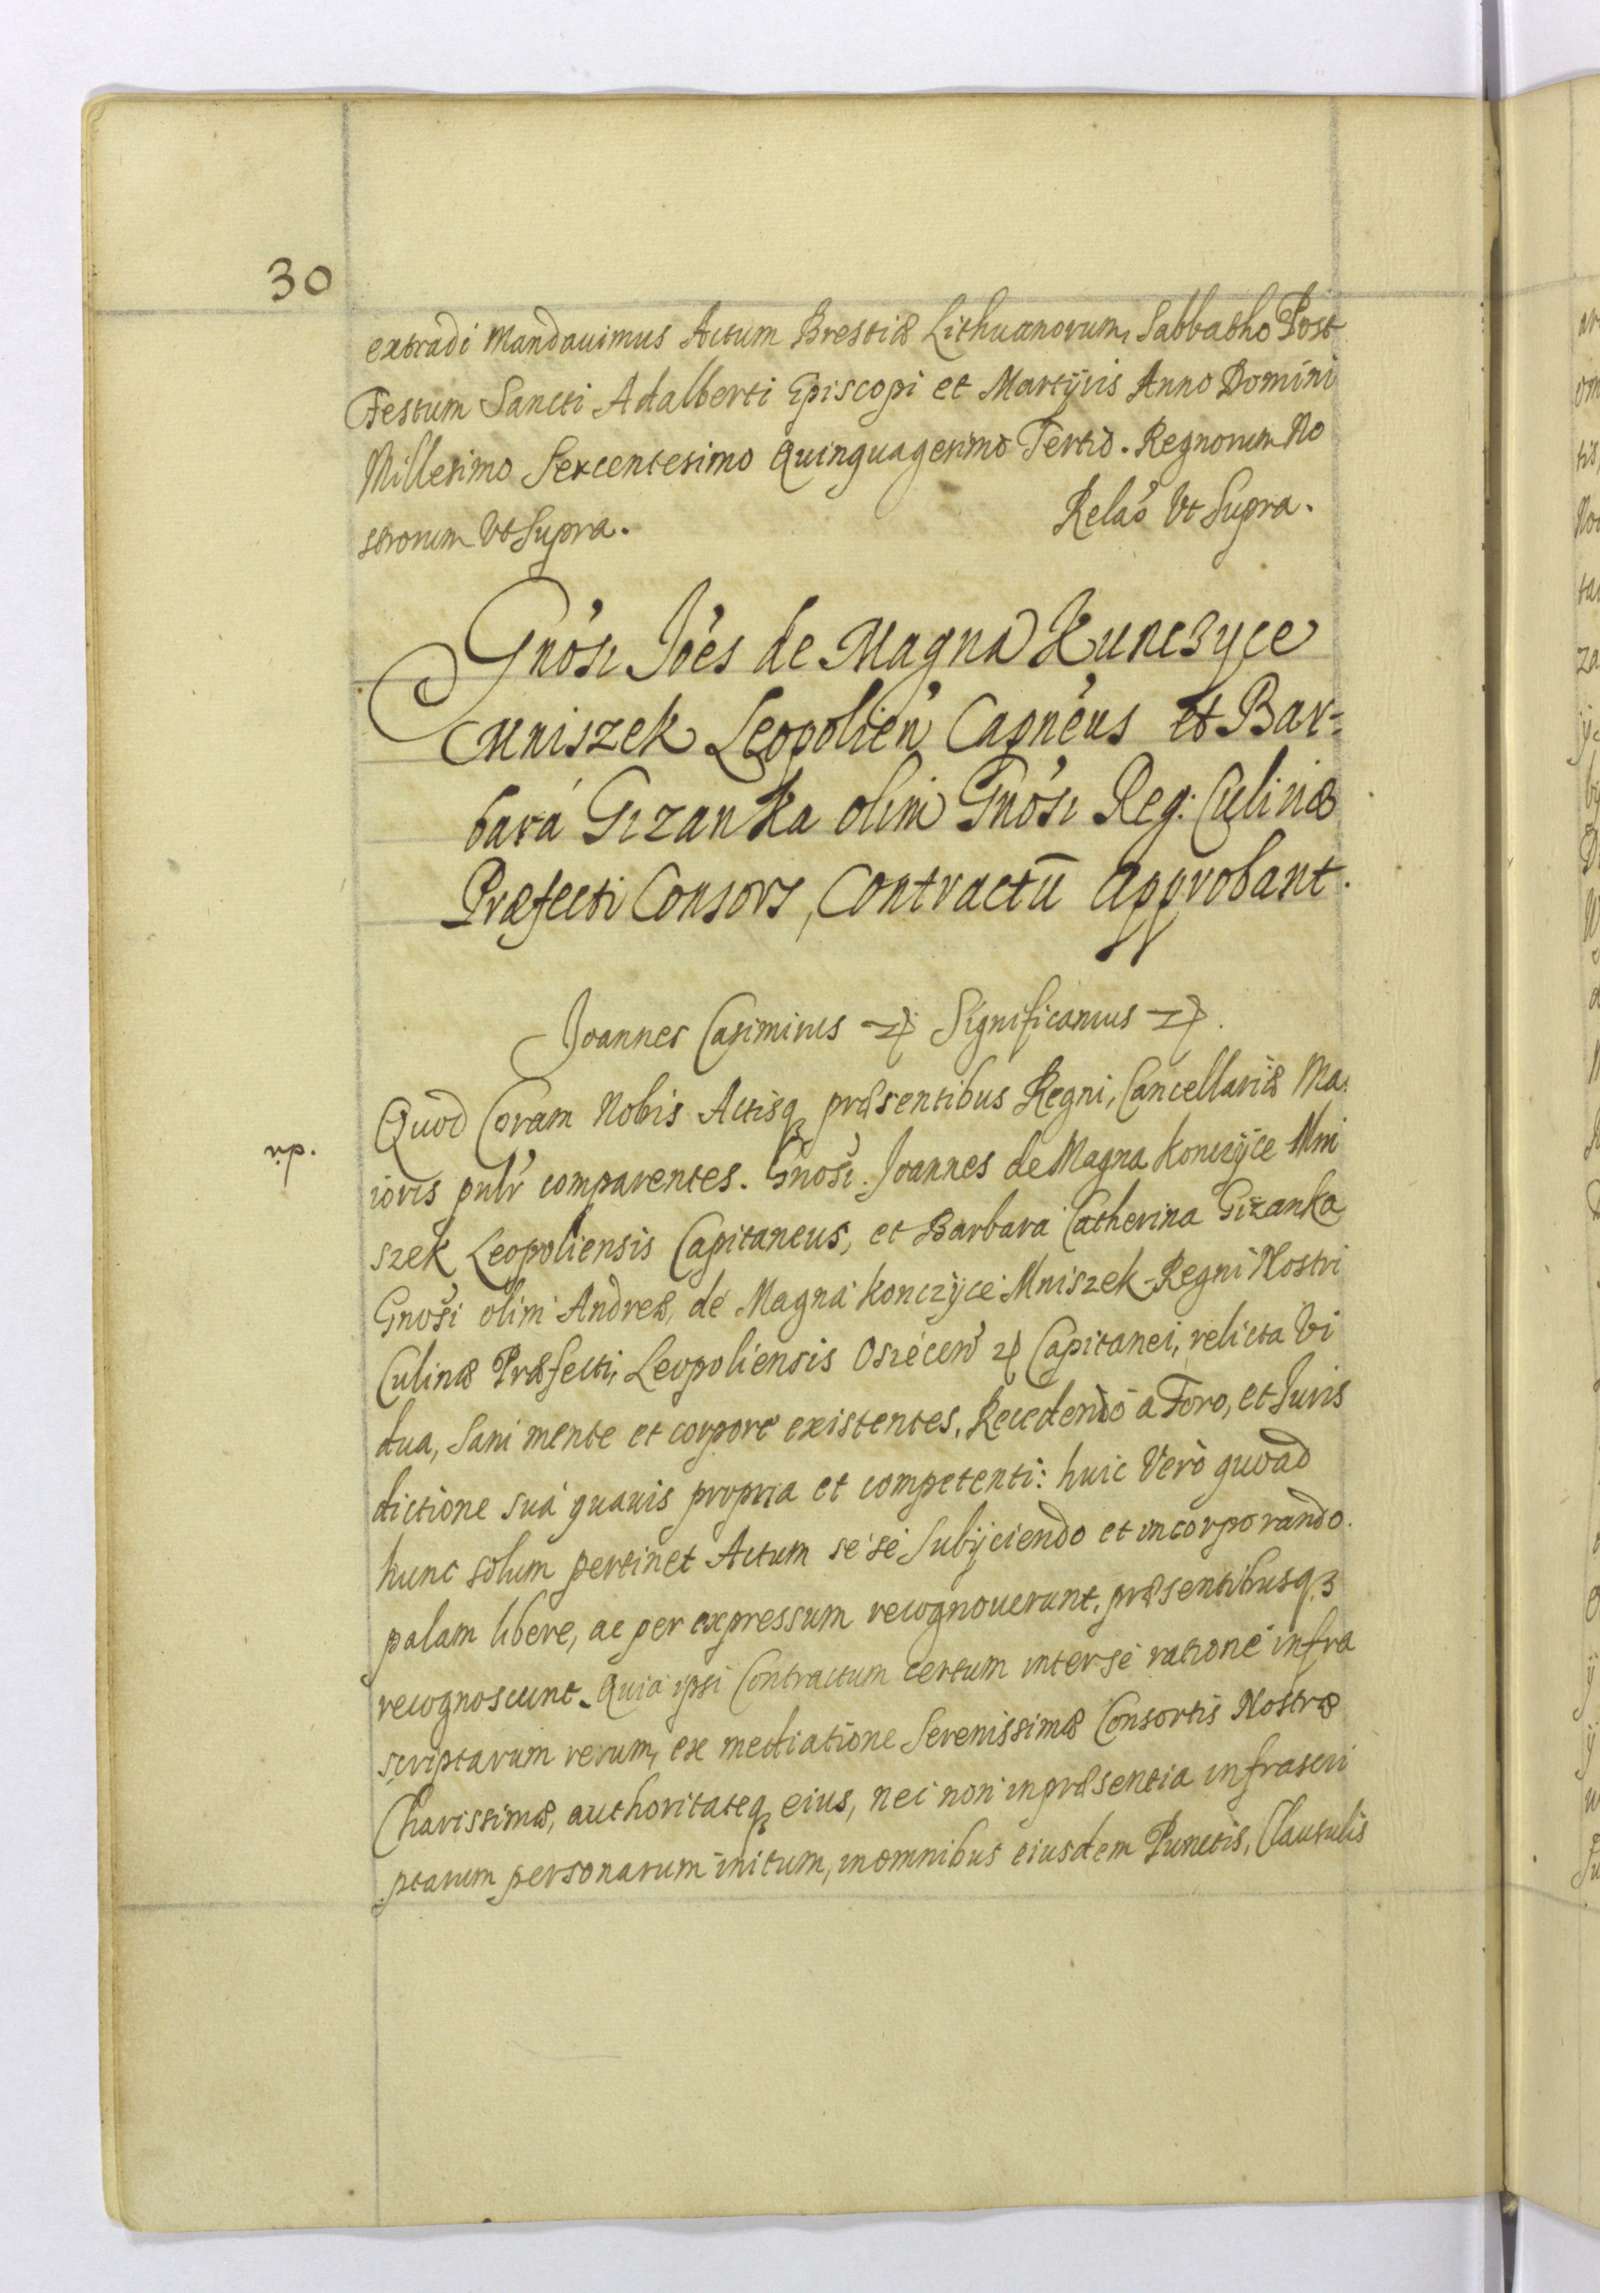 30
extradi Mandauimus Actum Brestiæ Lithuanorum, Sabbatho Post
Festum Sancti Adalberti Episcopi et Martÿris Anno Domini
Millesimo Sexcentesimo Quinquagesimo Tertio. Regnorum No
strorum Vt Supra.
Relão Vt Supra.
Gnosi Joes de Magna Kunczyce
Mniszek Leopolien Capneus et Bar-
bara Gizanka olim Gnosi Reg: Culinæ
Præfecti Consors, Contractū Approbant.
Joannes Casimirus Significamus
Quod Coram Nobis Actisq præsentibus Regni, Cancellariæ Ma.
ioris pulr comparentes. Gnosi. Joannes de Magna Konczÿce Mni
szek Leopoliensis Capitaneus, et Barbara Catherina Gizanka
Gnosi olim Andreæ, de Magna Konczÿce Mniszek Regni Nostri
Culinæ Præfecti, Leopoliensis Osiecen Capitanei, relicta Vi
dua, Sani mente et corpore existentes, Recedendo a Foro, et Juris
dictione sua quauis propria et competenti: huic Vero quoad
hunc solum pertinet Actum se se Subÿciendo et incorporando.
palam libere, ac per expressum recognouerunt, præsentibusq3
recognoscunt. Quia ipsi Contractum certum inter se ratione infra
scriptarum rerum, ex mediatione Serenissimæ Consortis Nostræ
Charissimæ, authoritateq eius, nec non in præsentia infrascri
ptarum personarum initum, in omnibus eiusdem Punctis, Clausulis